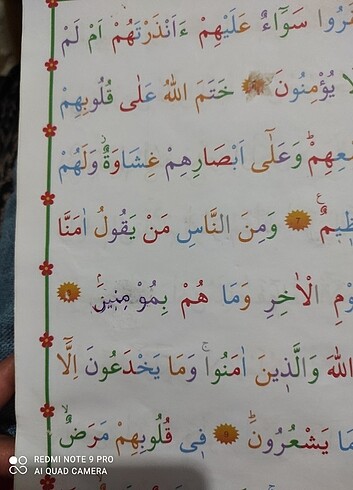 سَوَآءٌ عَلَيْهِمْ ءَاَنْذَرْتَهُمْ اَمْ لَمْ
يُؤْمِنُونَ ۶ خَتَمَ اللهُ عَلٰى قُلُوبِهِمْ
وَعَلٰٓى اَبْصَارِهِمْ غِشَاوَةٌ وَلَهُمْ
۷ وَمِنَ النَّاسِ مَنْ يَقُولُ اٰمَنَّا
الْاٰخِرِ وَمَا هُمْ بِمُوْمِنِينَ ۸
اللهَ وَالَّذِينَ اٰمَنُوا وَمَا يَخْدَعُونَ اِلَّآ
يَشْعُرُونَ ۹ فِى قُلُوبِهِمْ مَرَضٌ
REDMI NOTE 9 PRO
AI QUAD CAMERA